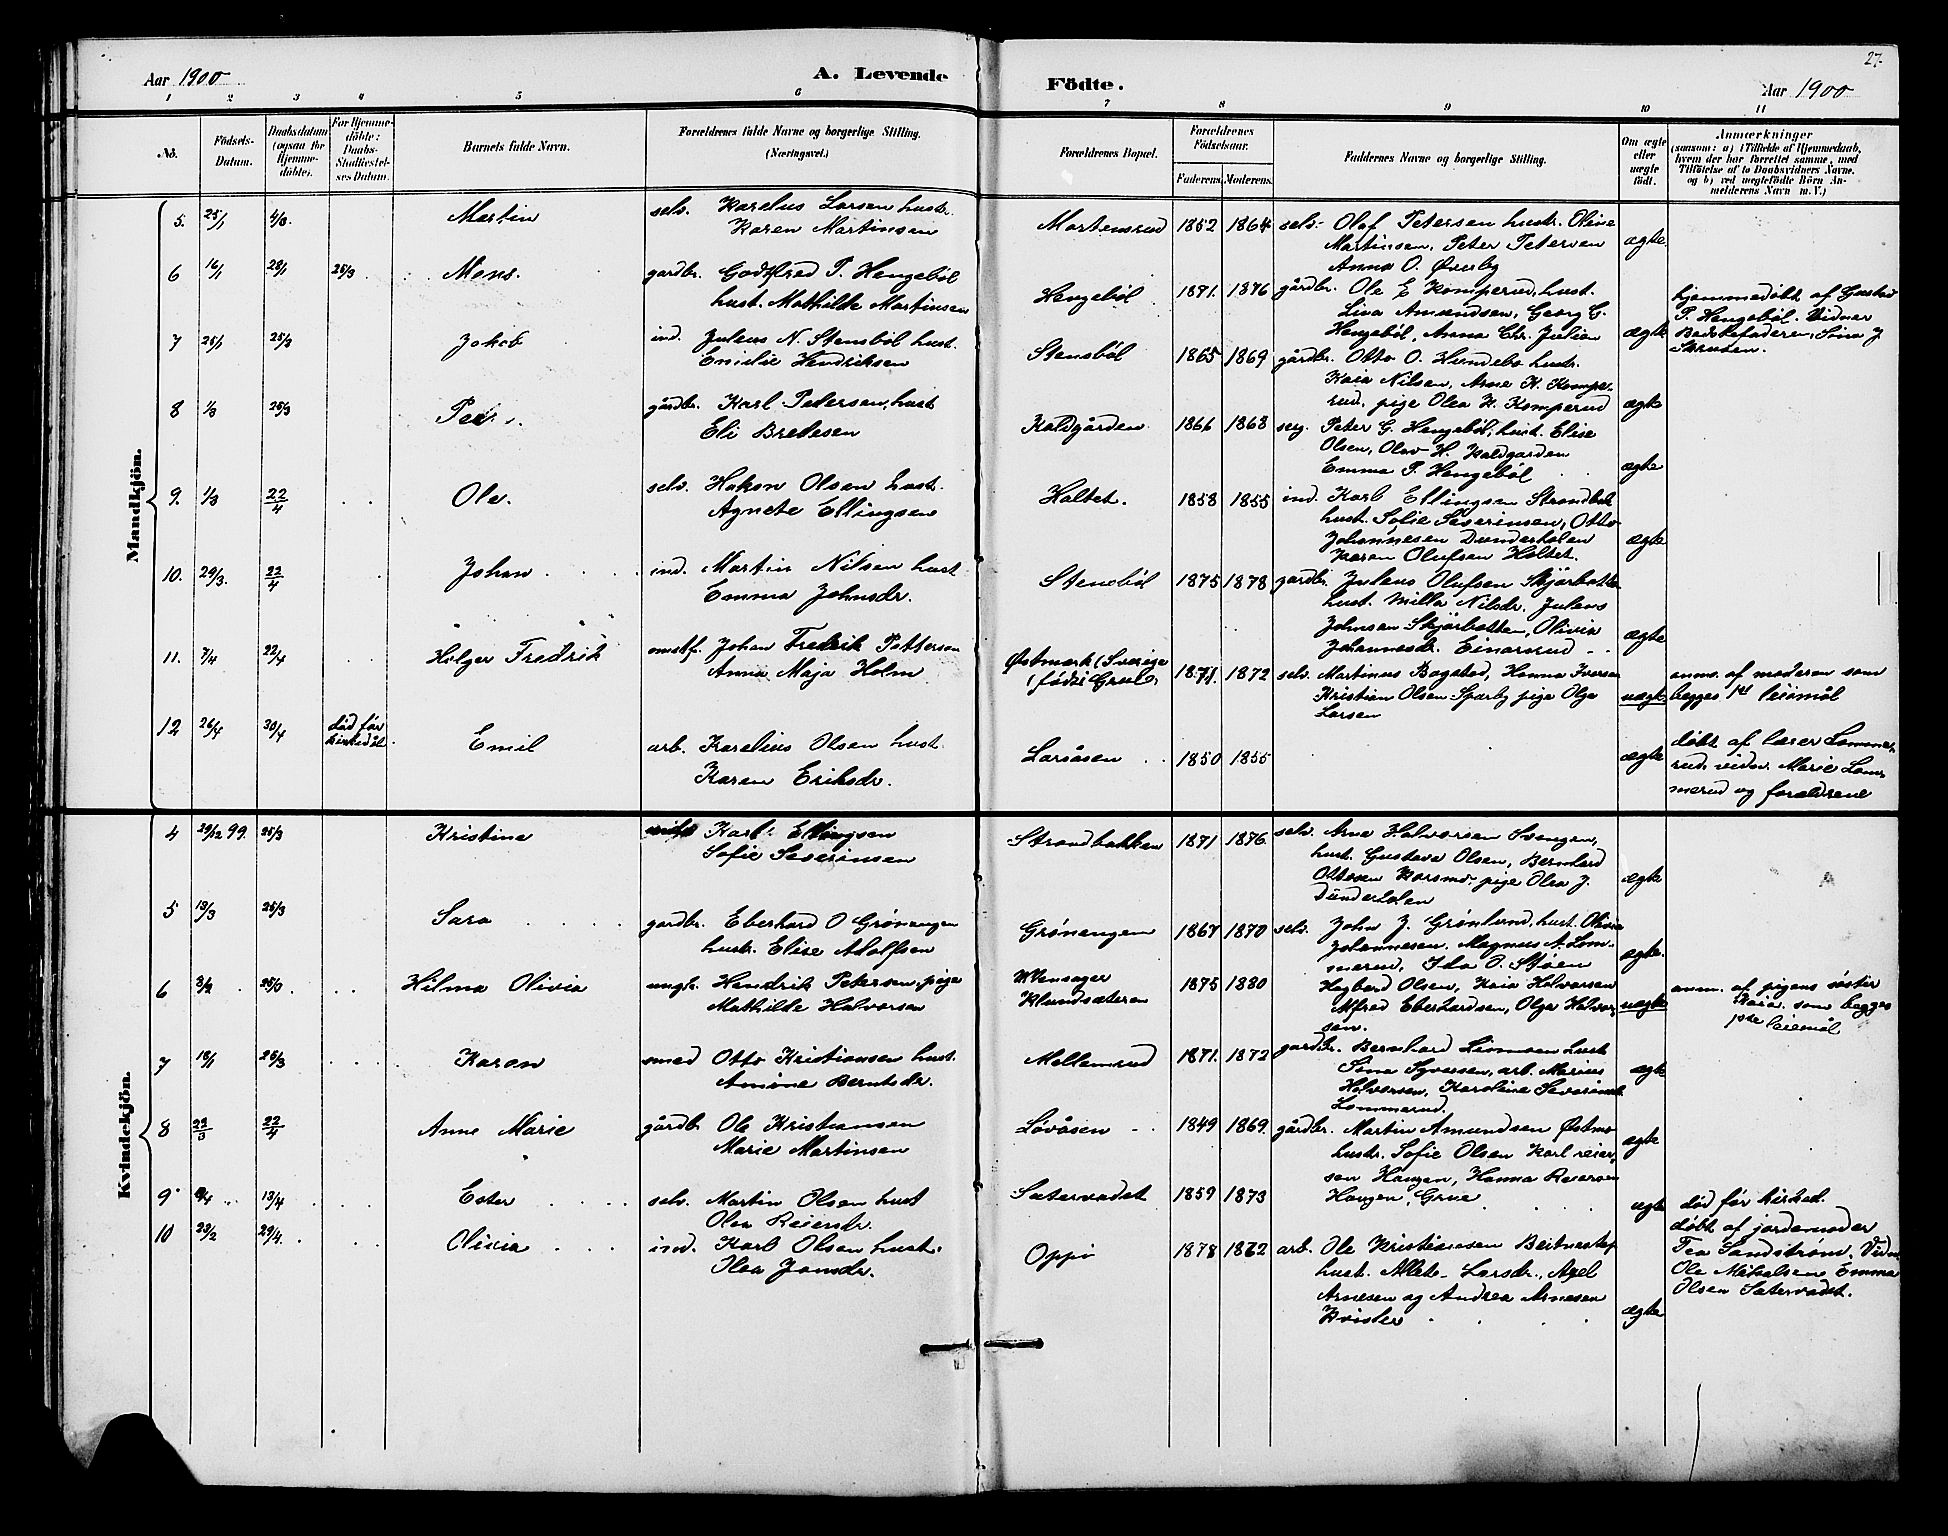 27.
Aar 1900 A. Levende Födte. Aar 1900
1 2 3 4 5 6 7 8 9 10 11
No.
Födsels-
Datum.
Daabsdatum
(ogsaa for
Hjemme-
döbte).
For Hjemme-
döbte:
Daabs-
Stadfæstel-
ses Datum.
Barnets fulde Navn.
Forældrenes fulde Navne og borgerlige Stilling.
(Næringsvei.)
Forældrenes Bopæl.
Forældrenes
Födselsaar.
Faderens. Moderens.
Faddernes Navne og borgerlige Stilling.
Om ægte
eller
uægte
födt.
Anmærkninger
(saasom: a) i Tilfælde af Hjemmedaab,
hvem der har forrettet samme, med
Tilföielse af to Daabsvidners Navne.
og b) ved uægtefödte Börn An-
melderens Navn m. V.)
Mandkjön.
5. 25/1 4/3 Martin
selv. Karelius Larsen hustr.
Karen Martinsen
Mortensrud 1852 1864
selv. Olaf Petersen hustr. Oline
Martinsen, Peter Petersen
Anna O. Øverby
ægte
6 16/1 28/1 25/3 Mons.
gardbr. Godtfred P. Hengebøl
hust. Mathilde Martinsen
Hengebøl 1871. 1876
gårdbr. Ole E Komperud, hust.
Lina Amundsen, Georg C.
Hengebøl, Anna Chr. Julien
ægte
hjemmedøbt af Gustav
P. Hengebøl. Vidner
Bedstefaderen, Sina J
7 25/1 25/3 Jakob
ind. Julius N. Stensbøl hust.
Emilie Hendriksen
Stensbøl 1865 1869
gårdbr. Otto O. Hundebo hustr.
Kaia Nilsen, Arne K. Kompe-
rud, pige Olea K. Komperud
ægte
8 1/3 25/3
gårdbr. Karl Petersen, hust
Eli Bredesen
Kaldgården 1866 1868
Peter G. Hengebøl, hust. Elise
Olsen, Olav H. Kaldgarden
Emma P. Hengebøl
ægte
9. 1/3 22/4 Ole.
selv. Hakon Olsen hust.
Agnete Ellingsen
Holtet. 1858 1855
ind. Karl Ellingsen Strandbak
hust. Sofie Severinsen, Otto
Johannesen Dunderholen
Karen Olufsen Holtet.
ægte
10. 29/3. 22/4 Johan
ind. Martin Nilsen hust
Emma Johnsdr.
Stensbøl 1875 1878
gardbr. Julius Olufsen Skjærbatten
hust. Milla Nilsdr. Julius
Johnsen Skjærbatten, Olivia
Johannesdr. Einarsrud
ægte
11. 7/4 22/4 Holger Fredrik
omstf. Johan Fredrik Petterson
Anna Maja Holm
Østmark (Sverige
(født i Grue)
1871. 1872
selv. Martinus Bogstad, Hanna Iversen
Kristian Olsen Sparby pige Olga
Larsen
uægte
anm. af moderen som
begges 1ste leiemål
12 26/4 30/4 død før
kirkedåb.
Emil
arb. Karelius Olsen hust.
Karen Eriksdr.
Larsåsen 1850 1855
ægte
døbt af lærer Lomme-
rud. vidner Marie Lom-
merud og forældrene
Kvindekjön.
4 29/12 99. 25/3 Kristine
Karl Ellingsen
Sofie Severinsen
Strandbakken 1871 1876
selv. Arne Halvorsen Svengen,
hust. Gustava Olsen, Bernhard
Ottesen pige Olea J.
Dunderholen
ægte
5 13/3 25/3 Sara
gardbr. Eberhard O Grønengen
hustr. Elise Adolfsen
Grønengen 1867 1870
selv. John J. Grønlund, hust. Olivia
Johannesen, Magnus A. Lom-
merud, Ida O. Støen
ægte.
6 3/2 25/3 Hilma Olivia
ungk. Hendrik Petersen, pige
Mathilde Halvorsen
N. Vensager
Klundsæteren
1875 1880
Hagbard Olsen, Kaia Halvorsen
Alfred Eberhardsen, Olga Halvor-
sen.
uægte
anm. af pigens søster
Kaia. som begges
1ste leiemål
7 18/1 25/3 Karen
smed Otto Kristiansen hust.
Amine Berntsdr.
Mellemrud 1871. 1872
gardbr. Bernhard Simsen hust
Sina Syversen, arb. Marius
Halvorsen, Karoline Severinsd
Lommerud.
ægte
8 22/3 22/4 Anne Marie
gårdb. Ole Kristiansen
Marie Martinsen
Løvåsen 1849 1869.
gårdbr. Martin Amundsen Østmo
hustr. Sofie Olsen Karl reier-
sen Haugen, Hanna Reiersen
Haugen, Grue
ægte
9 13/4 Ester
selv. Martin Olsen hust
Olea Reiersdr.
Sætervadet 1859 1873
ægte
død før kirked.
døbt af jordemoder
Tea Sandstrøm. Vidn.
Ole Mikalsen Emma
Olsen Sætervadet.
10 23/2 29/4. Olivia
ind. Karl Olsen hust.
Olea Jonsdr.
Oppi 1878 1872
arb. Ole Kristiansen
hust. Allete Larsdr., Axel
Arnesen og Andrea Arnesen
Kvister
ægte